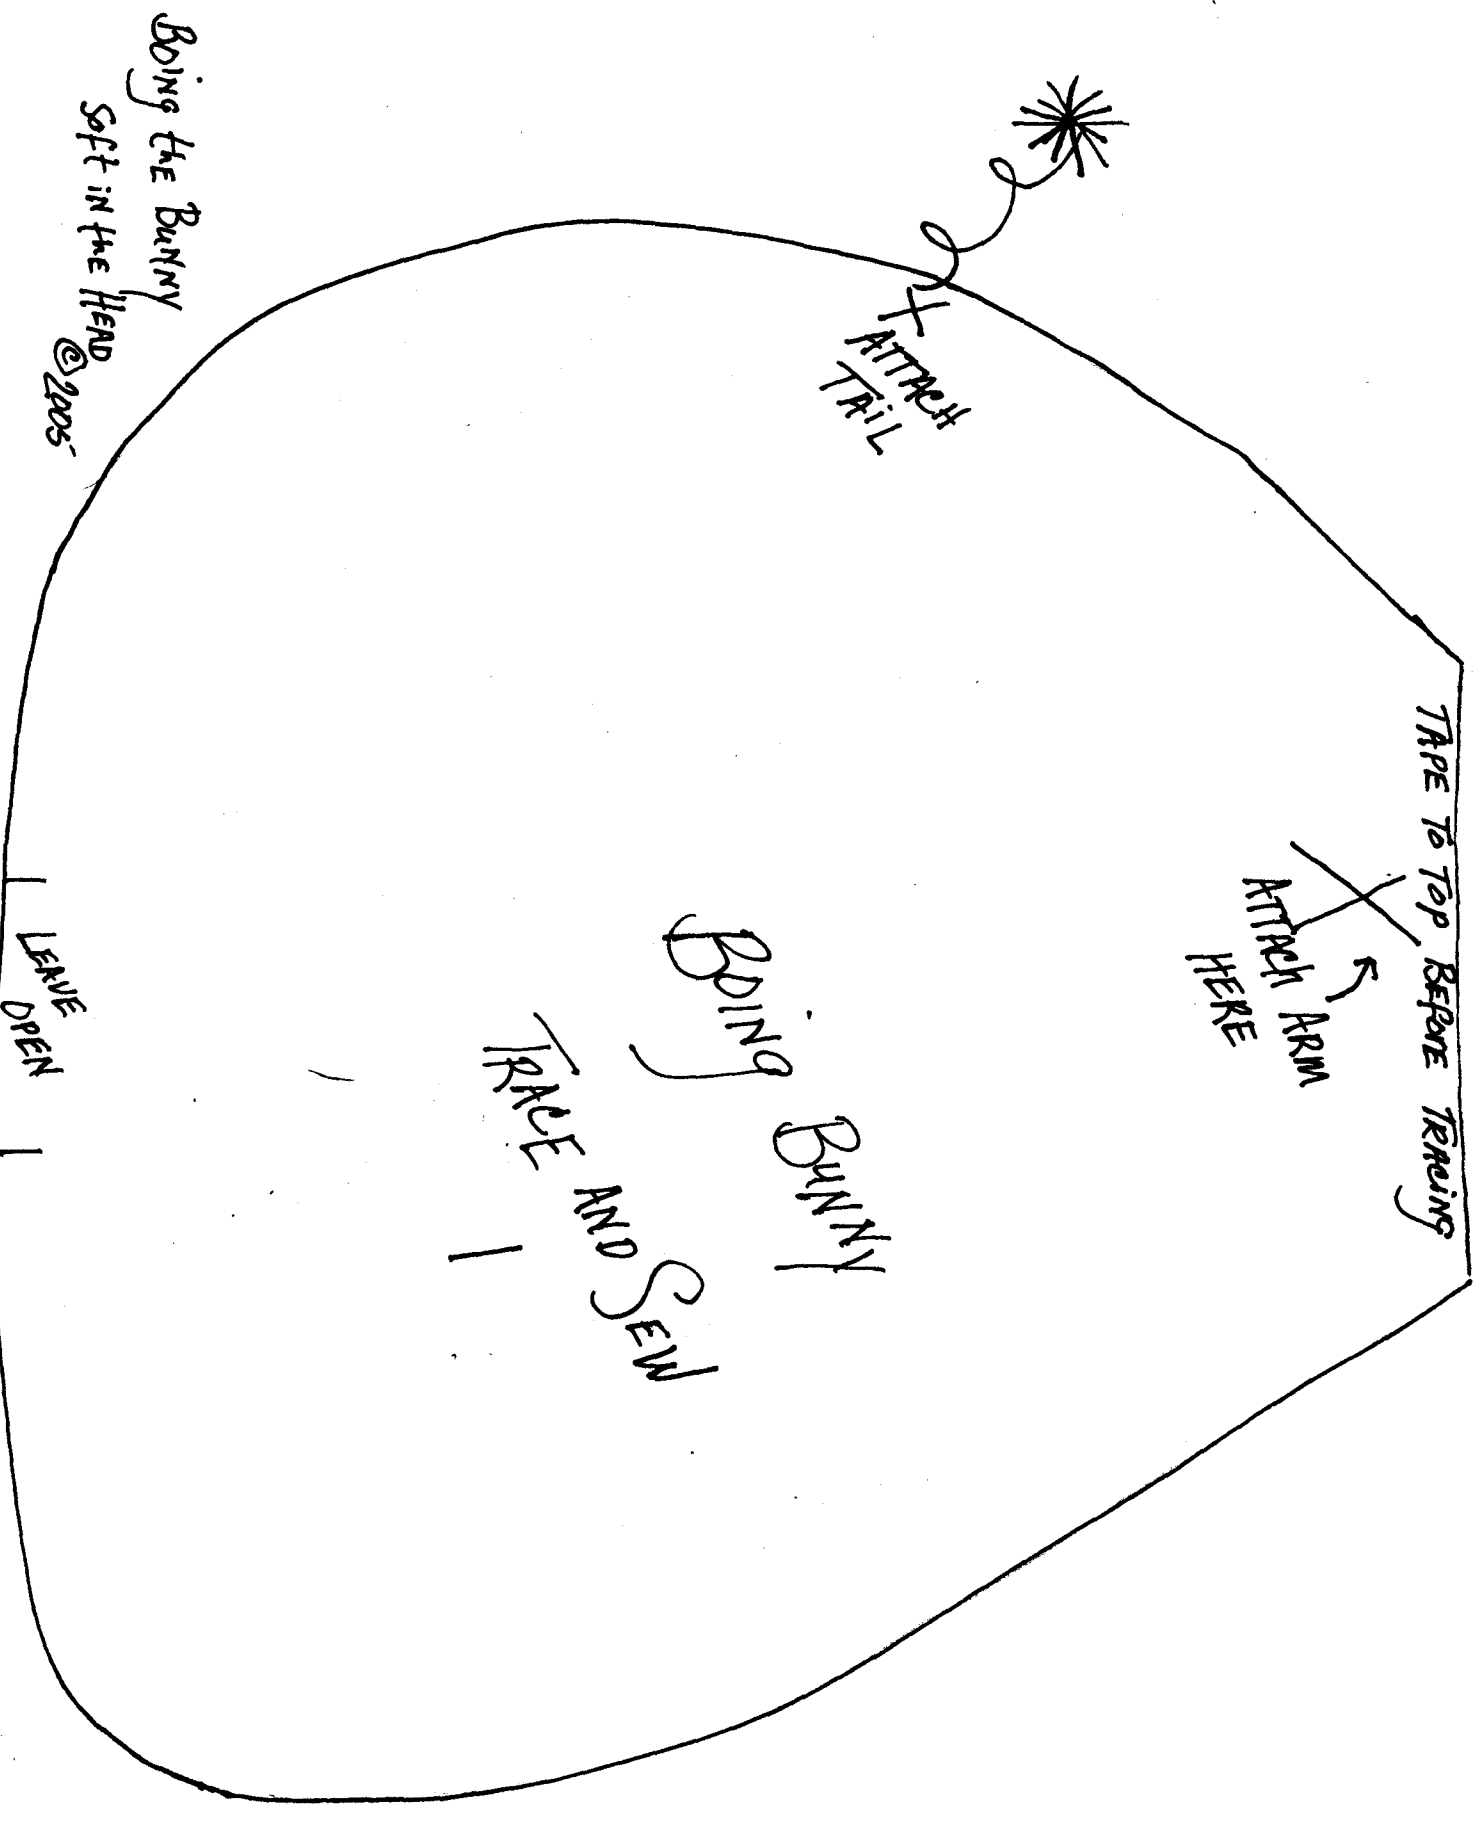 TAPE TO TOP BEFORE TRACING
ATTACH ARM
HERE
ATTACH
TAIL
BOING BUNNY
TRACE AND SEW
LEAVE
OPEN
BOING the BUNNY
Soft in the HEAD
© 2005